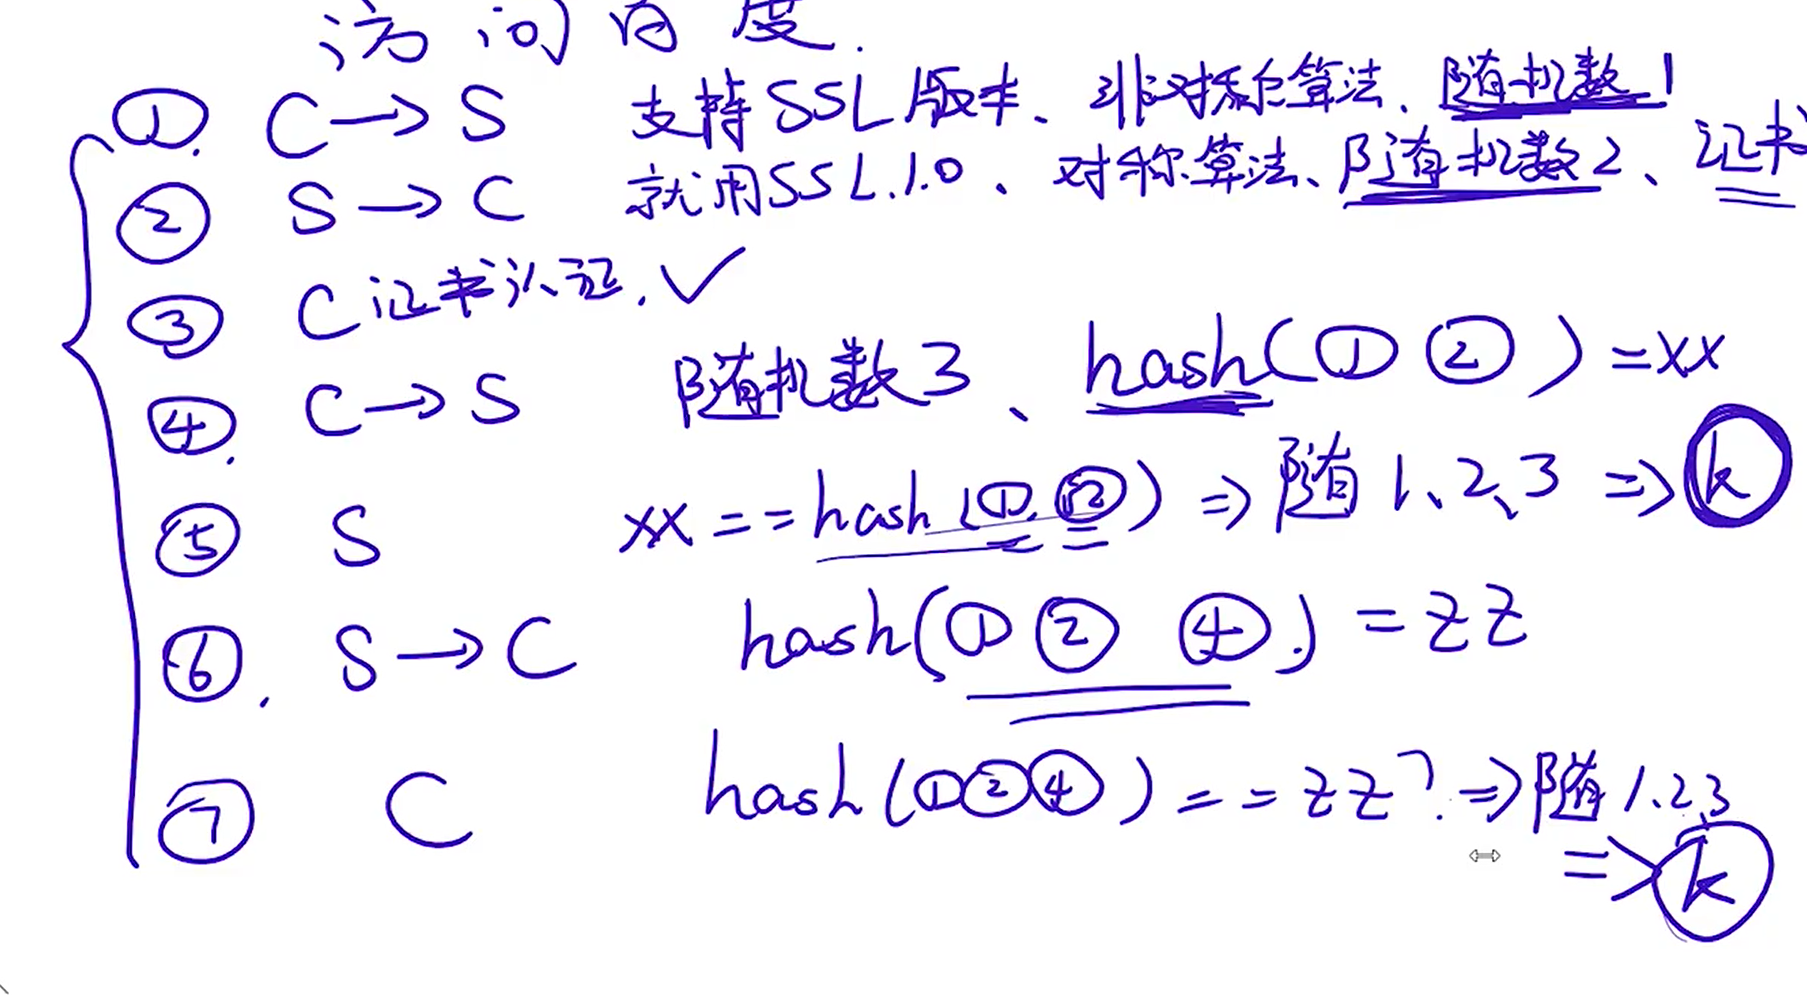 访问百度.
① C → S 支持SSL版本、非对称算法、随机数1
② S → C 就用SSL.1.0、对称算法、随机数2、证书
③ C证书认证. ✓
④ C → S 随机数3、hash(① ②) = xx
⑤ S xx == hash(①.②) ⇒ 随1、2、3 ⇒ k
⑥ S → C hash(① ② ④.) = zz
⑦ C hash(①②④) == zz? ⇒ 随1.2.3
⇒ k